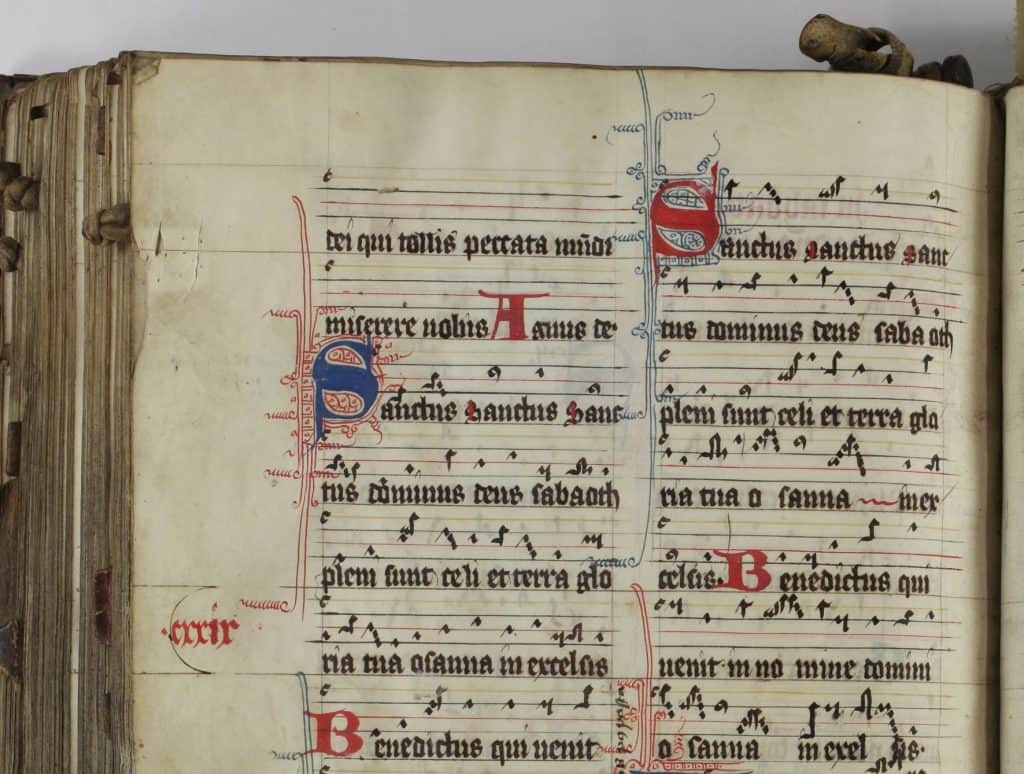 dei qui tollis peccata mu̅di
miserere nobis Agnus de
Sanctus sanctus sanc
tus dn̅minus deus sabaoth
pleni sunt celi et terra glo
cxxix
ria tua osanna in excelsis
Benedictus qui uenit
Sanctus sanctus sanc
tus dominus deus saba oth
pleni sunt celi et terra glo
ria tua o sanna in ex
celsis. Benedictus qui
uenit in no mine domini
o sanna in excel sis.